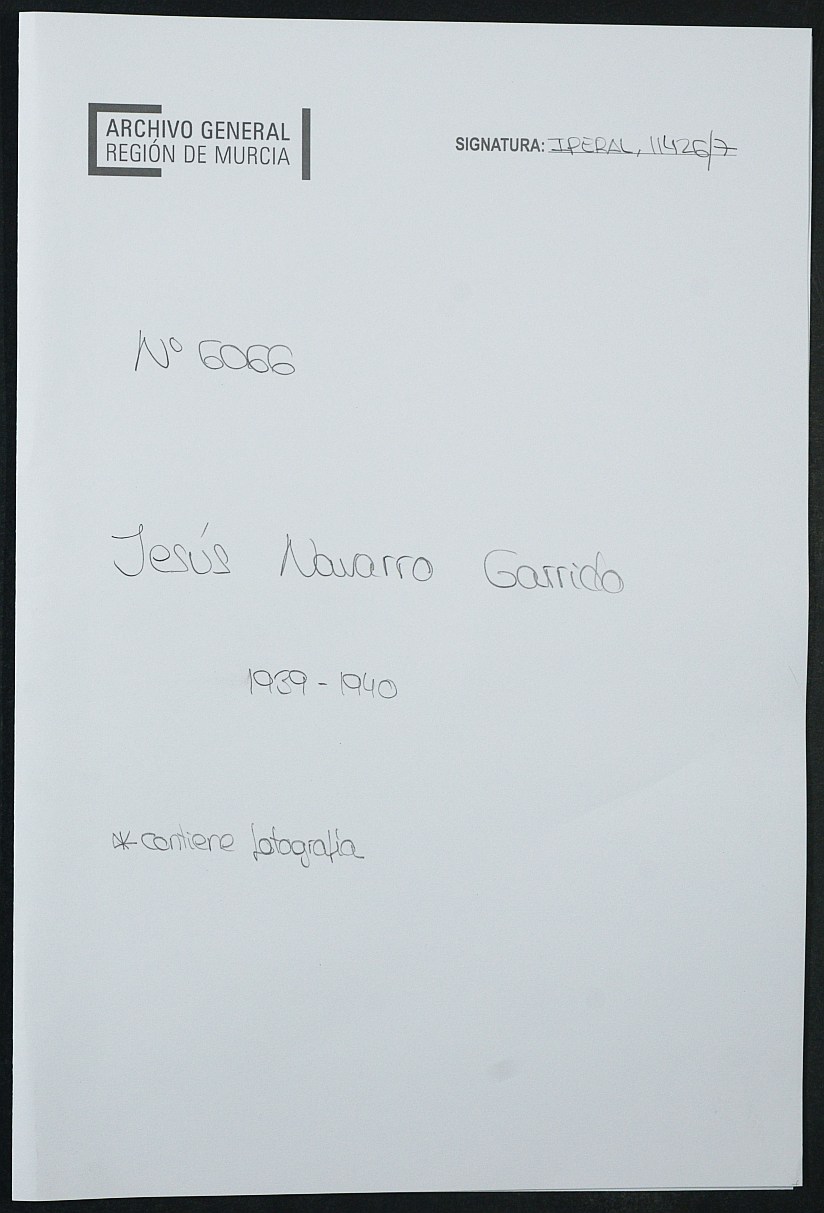 ARCHIVO GENERAL
REGIÓN DE MURCIA
SIGNATURA: IPERAL, 11426/7
Nº 6066
Jesús Navarro Garrido
1939 - 1940
* contiene fotografía